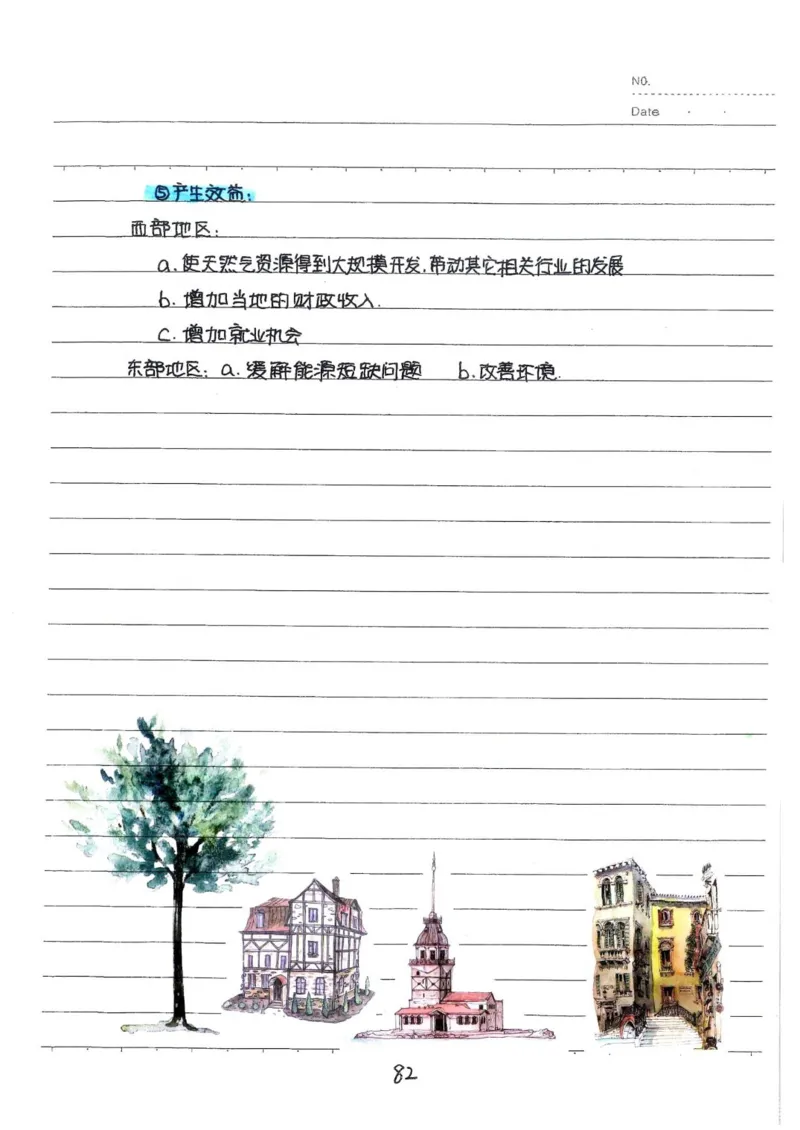 NO.
Date
⑤产生效益:
西部地区:
a.使天然气资源得到大规模开发,带动其它相关行业的发展
b.增加当地的财政收入.
c.增加就业机会
东部地区: a.缓解能源短缺问题 b.改善环境.
82